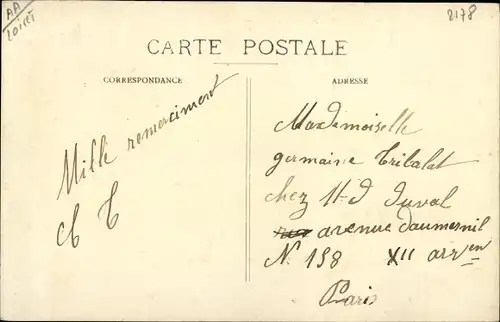 AA
Loiret
2178
CARTE POSTALE
CORRESPONDANCE
ADRESSE
Mille remerciment
Mademoiselle
germaine Tribalat
chez Duval
avenue daumesnil
N. 158 XII arr en
Paris